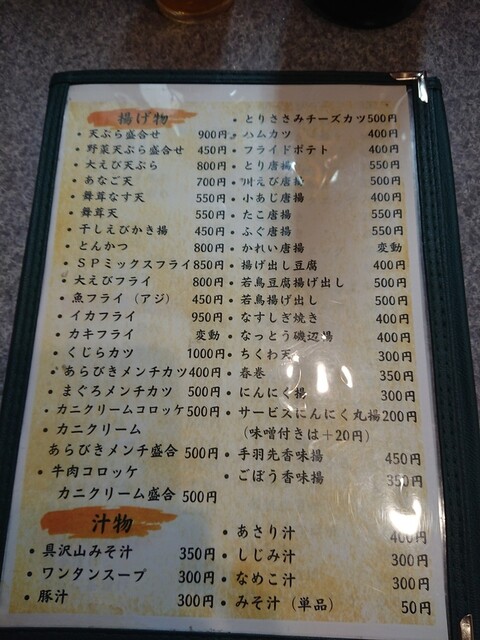 揚げ物
天ぷら盛合せ 900円
野菜天ぷら盛合せ 450円
大えび天ぷら 800円
あなご天 700円
舞茸なす天 550円
舞茸天 550円
干しえびかき揚 450円
とんかつ 800円
SPミックスフライ 850円
大えびフライ 800円
魚フライ(アジ) 450円
イカフライ 950円
カキフライ 変動
くじらカツ 1000円
あらびきメンチカツ 400円
まぐろメンチカツ 500円
カニクリームコロッケ 500円
カニクリーム
あらびきメンチ盛合 500円
牛肉コロッケ
カニクリーム盛合 500円
とりささみチーズカツ 500円
ハムカツ 400円
フライドポテト 400円
とり唐揚 550円
川えび唐揚 500円
小あじ唐揚 400円
たこ唐揚 550円
ふぐ唐揚 550円
かれい唐揚 変動
揚げ出し豆腐 400円
若鳥豆腐揚げ出し 500円
若鳥揚げ出し 500円
なすしぎ焼き 400円
なっとう磯辺揚 400円
ちくわ天 300円
春巻 350円
にんにく揚 300円
サービスにんにく丸揚 200円
(味噌付きは+20円)
手羽先香味揚 450円
ごぼう香味揚 350円
汁物
具沢山みそ汁 350円
ワンタンスープ 300円
豚汁 300円
あさり汁 400円
しじみ汁 300円
なめこ汁 300円
みそ汁(単品) 50円